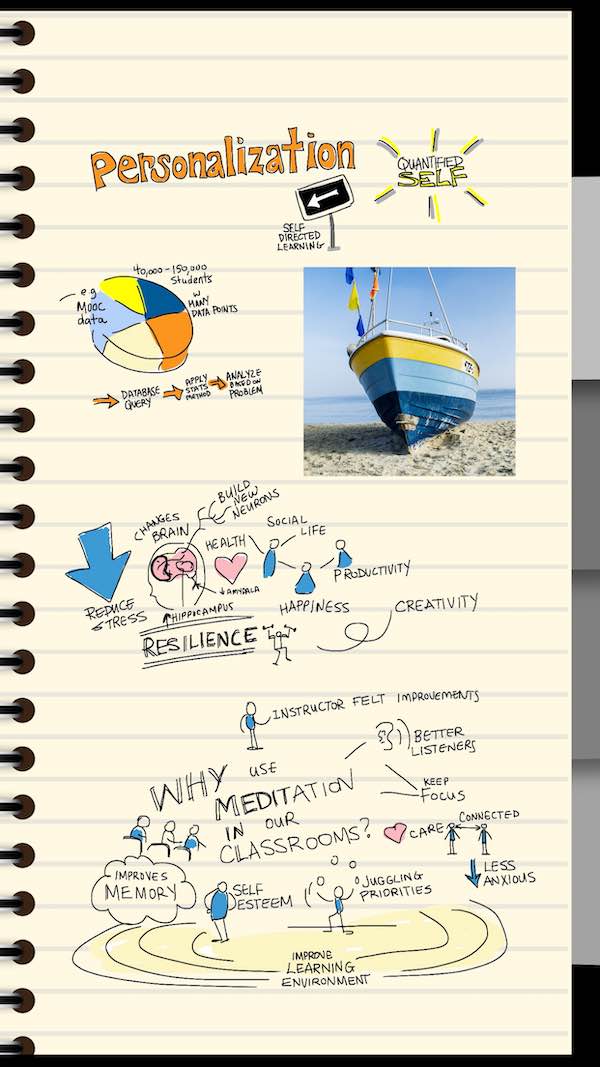 Personalization
QUANTIFIED
SELF
SELF
DIRECTED
LEARNING
40,000-150,000
Students
w
MANY
DATA POINTS
eg
Mooc
data
DATABASE
QUERY
APPLY
STATS
METHOD
ANALYZE
BASED ON
PROBLEM
BUILD
NEW
NEURONS
CHANGES
BRAIN
HEALTH
SOCIAL
LIFE
PRODUCTIVITY
REDUCE
STRESS
↑HIPPOCAMPUS
↓AMYGDALA
HAPPINESS
CREATIVITY
RESILIENCE
INSTRUCTOR FELT IMPROVEMENTS
BETTER
LISTENERS
KEEP
FOCUS
WHY USE
MEDITATION
IN OUR
CLASSROOMS?
CARE
CONNECTED
LESS
ANXIOUS
IMPROVES
MEMORY
SELF
ESTEEM
JUGGLING
PRIORITIES
IMPROVE
LEARNING
ENVIRONMENT